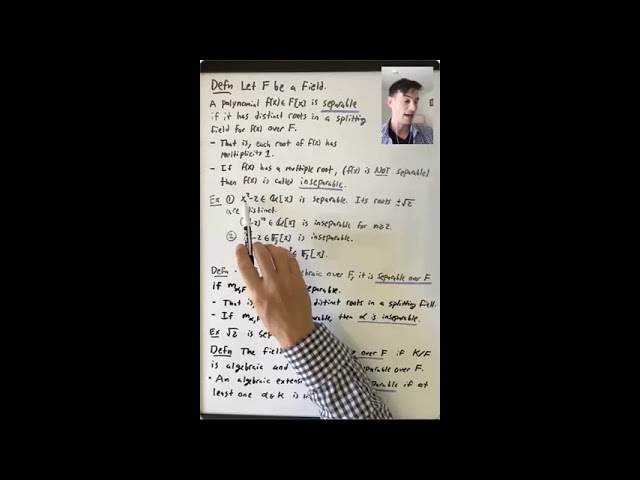 Defn Let F be a field.
A polynomial f(x) ∈ F[x] is separable
if it has distinct roots in a splitting
field for f(x) over F.
- That is, each root of f(x) has
multiplicity 1.
- If f(x) has a multiple root, (f(x) is NOT separable)
then f(x) is called inseparable.
Ex ① x²-2 ∈ ℚ[x] is separable. Its roots ±√2
are distinct.
-2)ⁿ ∈ ℚ[x] is inseparable for n≥2.
② -2 ∈ [x] is inseparable.
∈ [x].
Defn algebraic over F, it is separable over F
if
- That is, distinct roots in a splitting field.
- If then α is inseparable.
Ex √2 is
Defn The field over F if K/F
is algebraic and over F.
• An algebraic if at
least one α∈K is